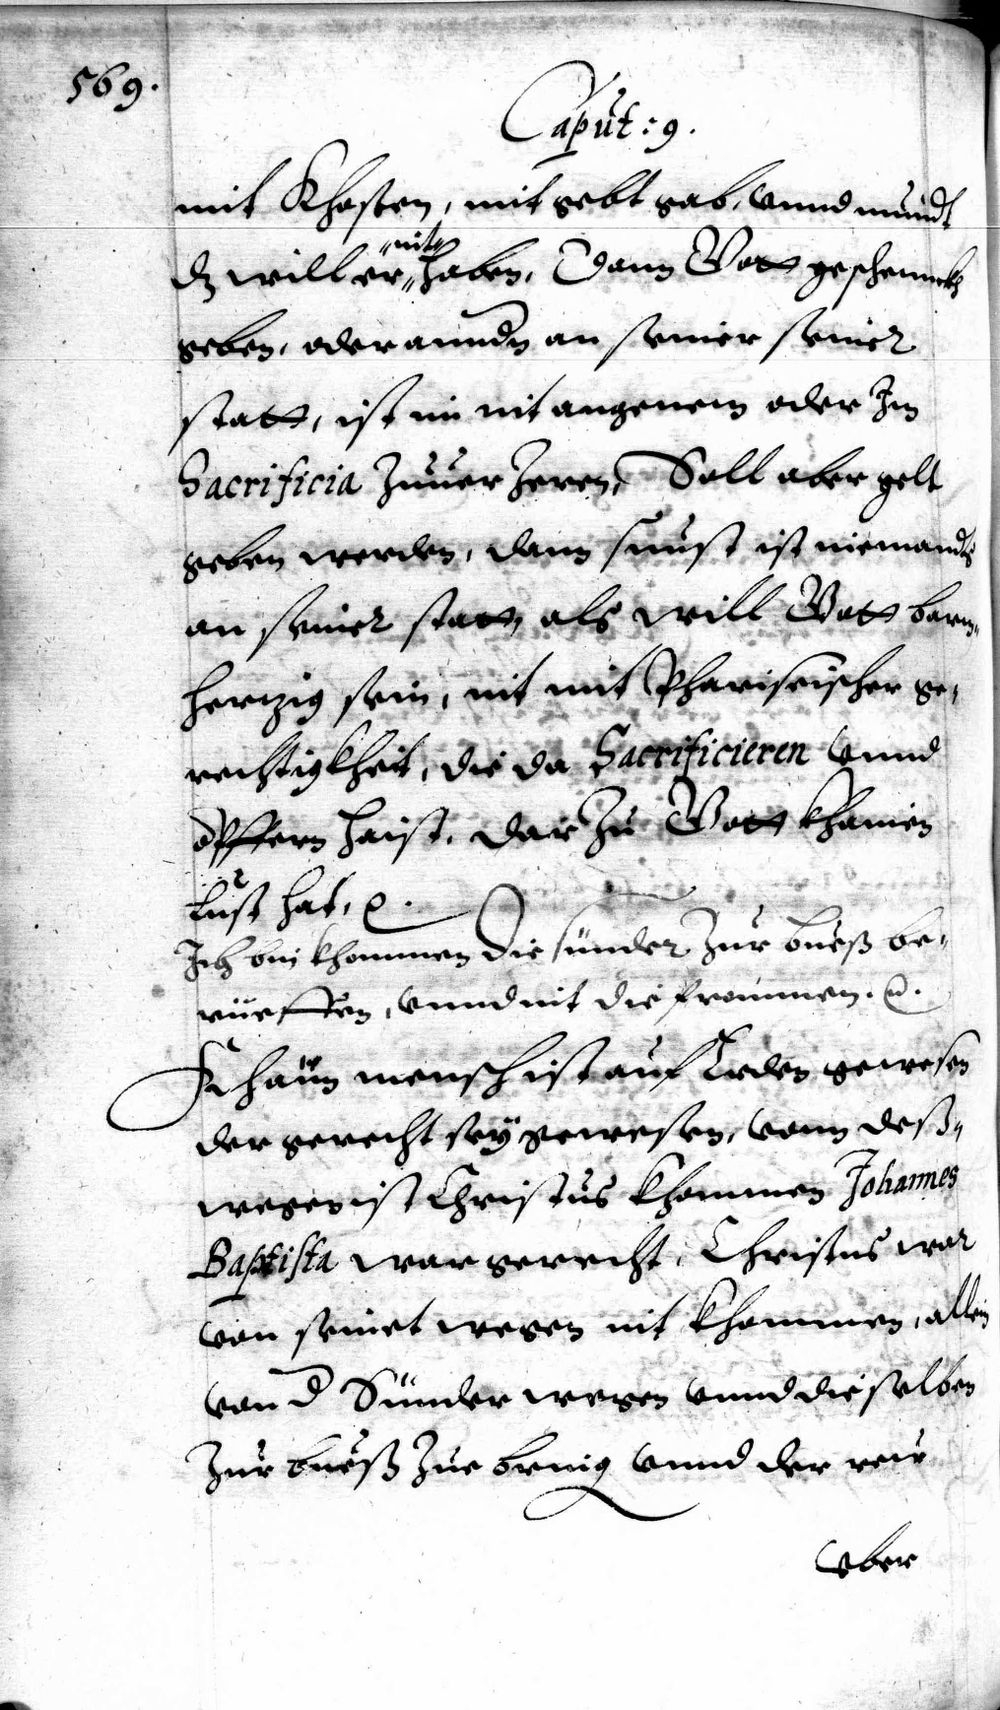 569.
Caput: 9.
mit Khasten, mit gebt gab, vnnd mundt
dz will er nit haben, Dann Gott geschennckh
geben, oder anndn an seiner seiner
statt, ist im nit angenem oder Im
Sacrificia Zuuer Zeren, Soll aber gelt
geben werden, dann sunst ist niemandts
an seiner statt, als will Gott barm„
hertzig sein, nit mit Phariseischer ge„
rechtigkheit, die da Sacrificieren vnnd
opffern haist, dar Zu Gott khainen
Lust hat, &.
Ich bin khommen die sünder Zur bueß be„
rüeffen, vnnd nit die frommen. &.
Khain mensch ist auf Erden gewesen
der gerecht seÿ gewesen, vonn deß„
wegen ist Christus khommen Johannes
Baptista war gerecht, Christus war
von seinet wegen nit khommen, allein
von d Sünder wegen vnnd dieselben
Zur bueß Zue bring vnnd der reir
vber